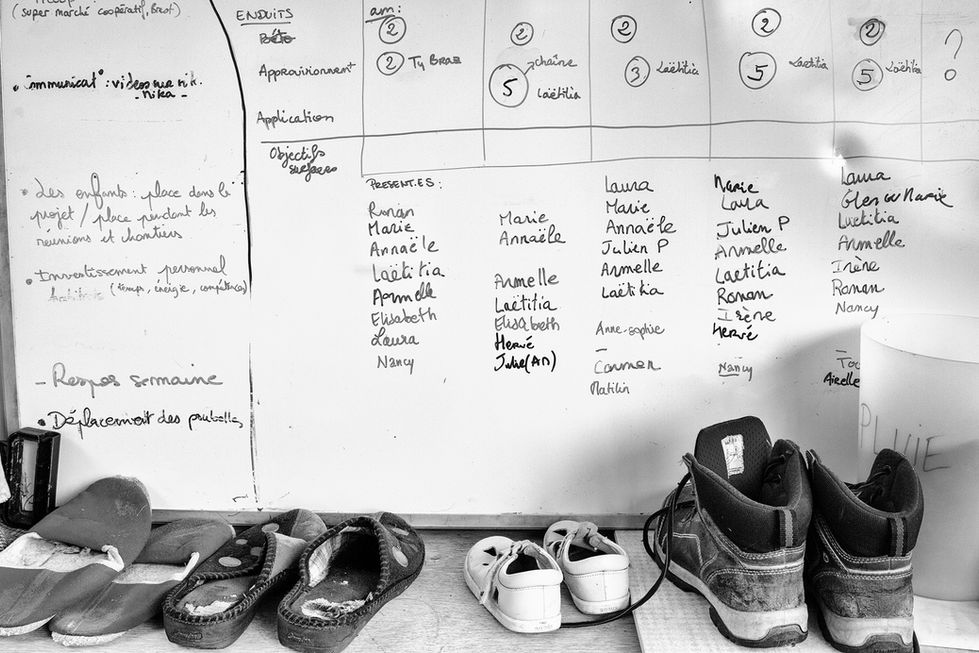 (super marché coopératif, Brest)
• Communicat° : videos sur nik.
- nika -
• Les enfants : place dans le
projet / place pendant les
réunions et chantiers
• Investissement personnel
(temps, énergie, compétences)
- Repas semaine
• Déplacement des poubelles
ENDUITS
am :
2
2
2
2
2
?
Approvisionnemt
2 Ty Braz
5 chaîne
Laëtitia
3 Laëtitia
5 Laetitia
5 Laëtitia
Application
Objectifs
surfaces
PRESENT.ES :
Ronan
Marie
Annaële
Laëtitia
Armelle
Elisabeth
Laura
Nancy
Marie
Annaële
Armelle
Laëtitia
Elisabeth
Hervé
Julie (AD)
Laura
Marie
Annaële
Julien P
Armelle
Laëtitia
Anne-Sophie
Carmen
Marie
Laura
Julien P
Armelle
Laetitia
Ronan
Irène
Hervé
Nancy
Laura
Glen ou Marie
Laetitia
Armelle
Irène
Ronan
Nancy
PLUIE